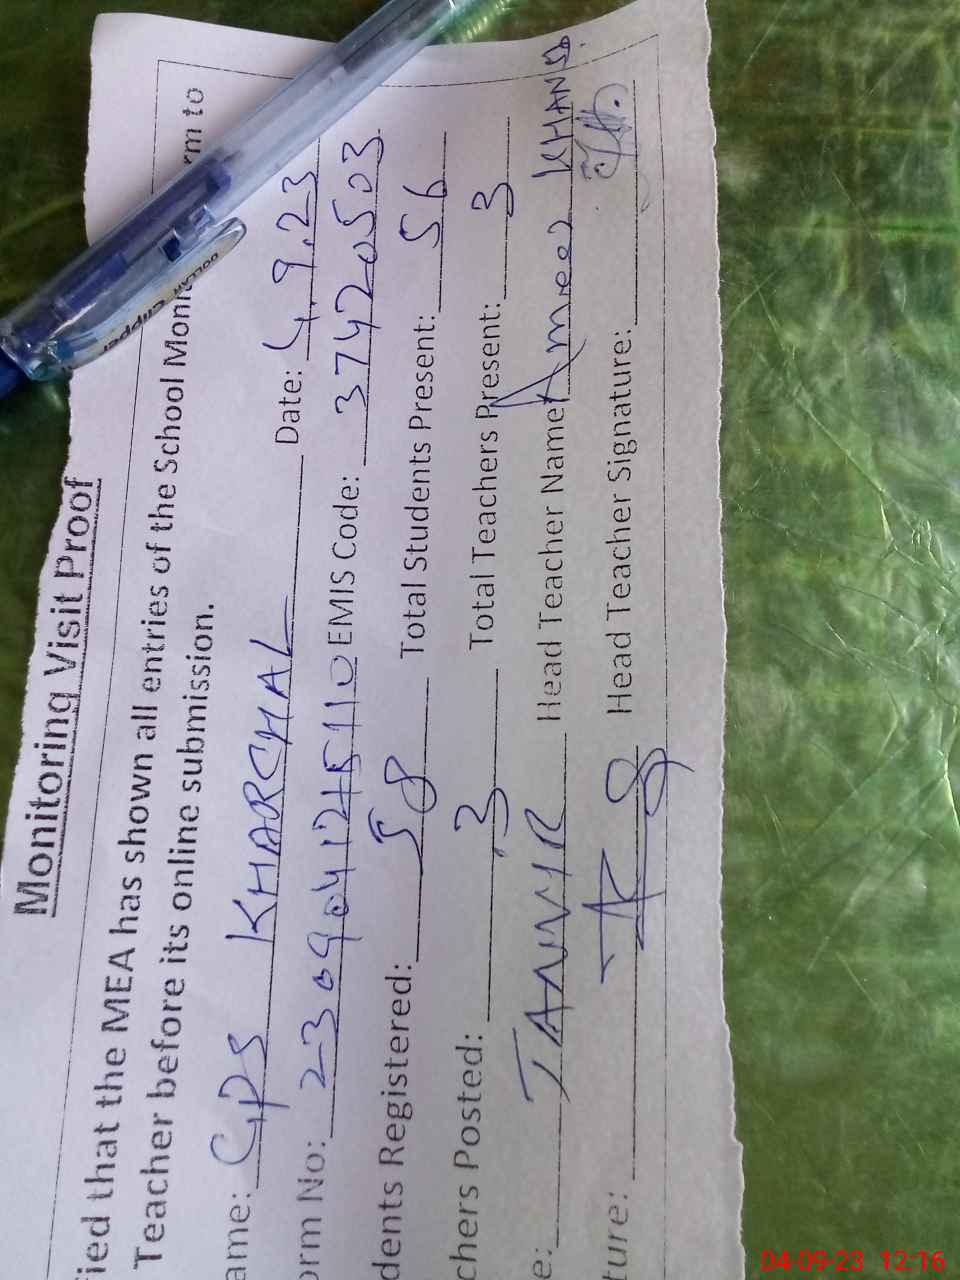 Monitoring Visit Proof
fied that the MEA has shown all entries of the School Moni rm to
Teacher before its online submission.
ame: GPS KHARCHAL Date: 4.9.23
orm No: EMIS Code: 37420503
dents Registered: 58 Total Students Present: 56
chers Posted: 3 Total Teachers Present: 3
e: TANVIR Head Teacher Name Ameer KHAN
ture: Head Teacher Signature:
DOLLAR Clipper
04-09-23 12:16